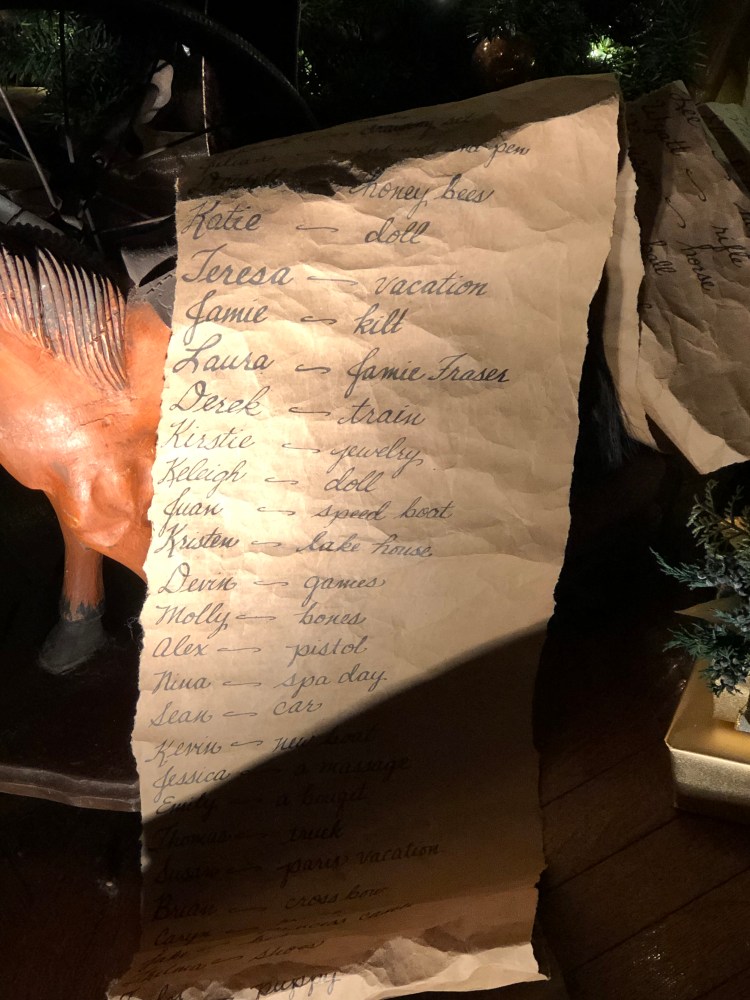 drawing set
and pen
honey bees
Katie — doll
Teresa — vacation
Jamie — kilt
Laura — Jamie Fraser
Derek — train
Kirstie — jewelry
Keleigh — doll
Juan — speed boat
Kristen — lake house
Devin — games
Molly — bones
Alex — pistol
Nina — spa day
Sean — car
Kevin — new boat
Jessica — a massage
Emily — a bouget
Thomas — truck
Susan — paris vacation
Brian — cross bow
Caryn
shoes
puppy
rifle
horse